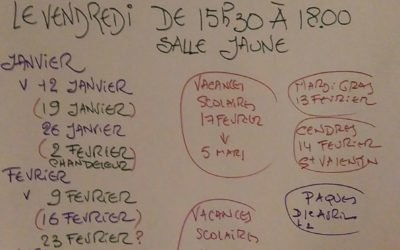 LE VENDREDI DE 15h30 À 18.00
SALLE JAUNE
JANVIER
V 12 JANVIER
(19 JANVIER)
26 JANVIER
(2 FEVRIER)
CHANDELEUR
FEVRIER
V 9 FEVRIER
(16 FEVRIER)
23 FEVRIER ?
VACANCES
SCOLAIRES
17 FEVRIER
↓
5 MARS
VACANCES
SCOLAIRES
MARDI GRAS
13 FEVRIER
CENDRES
14 FEVRIER
St VALENTIN
PAQUES
D 1er AVRIL